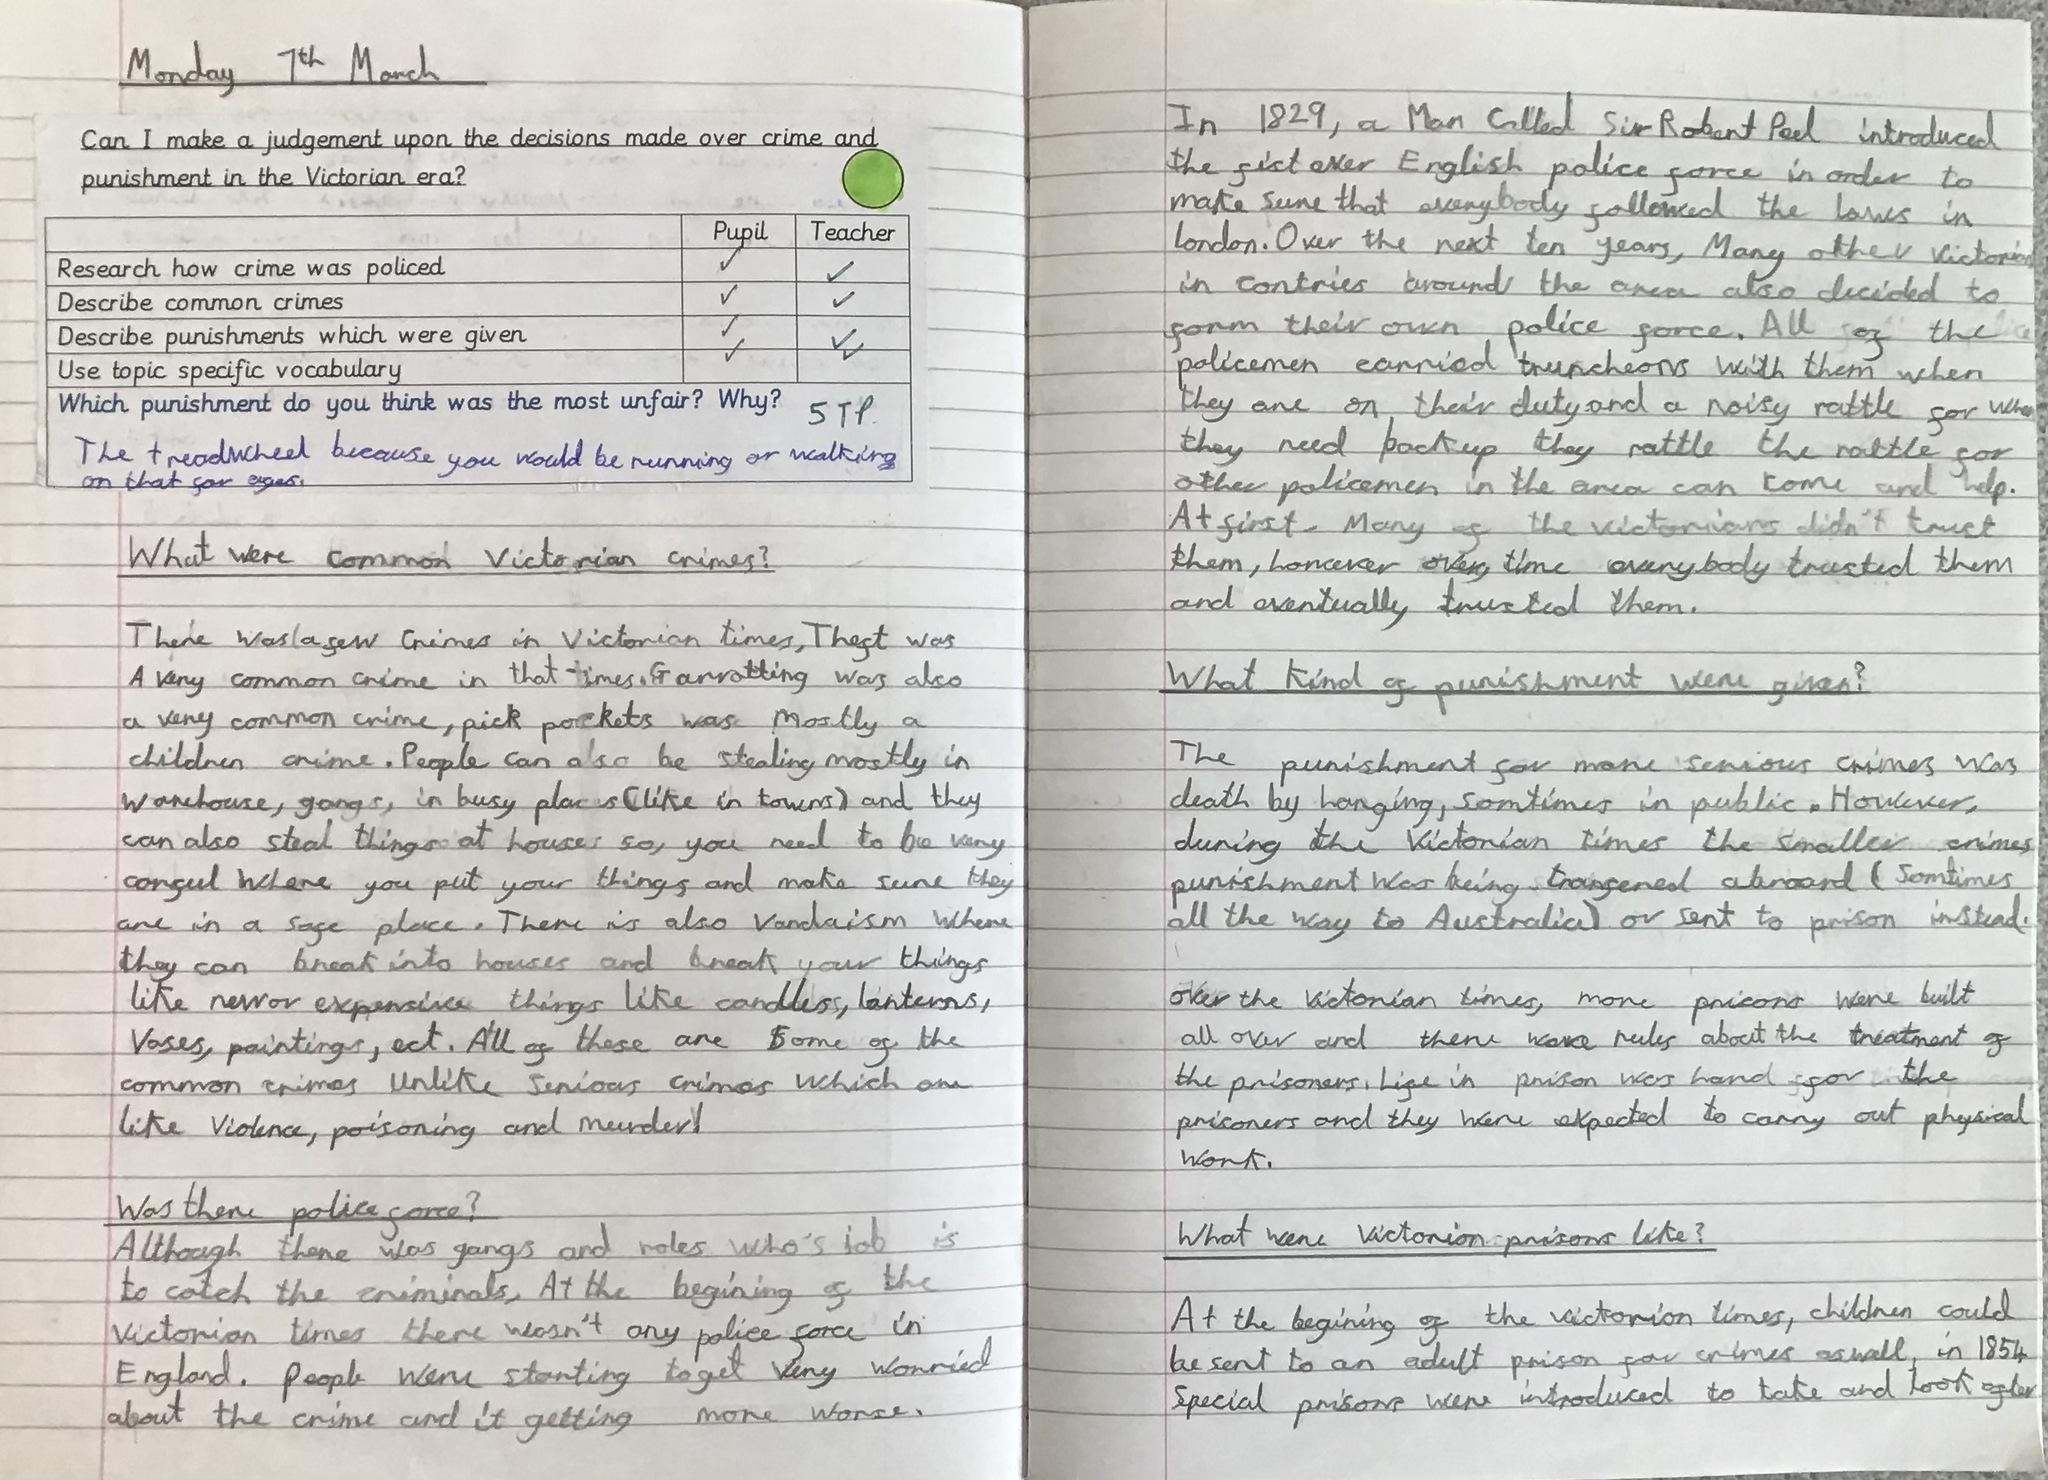 Monday 7th March
Can I make a judgement upon the decisions made over crime and
punishment in the Victorian era?
Pupil Teacher
Research how crime was policed ✓ ✓
Describe common crimes ✓ ✓
Describe punishments which were given ✓ ✓
Use topic specific vocabulary ✓ ✓
Which punishment do you think was the most unfair? Why? STP.
The treadwheel because you would be running or walking
on that for ages.
What were common Victorian crimes?
There was a few crimes in Victorian times, Theft was
A very common crime in that times. Garrotting was also
a very common crime, pick pockets was Mostly a
children crime. People can also be stealing mostly in
warehouse, gangs, in busy places (like in towns) and they
can also steal things at houses so, you need to be very
conful where you put your things and make sure they
are in a safe place. There is also Vandaism where
they can break into houses and break your things
like new or expensive things like candless, lanterns,
Vases, paintings, ect. All of these are Some of the
common crimes Unlike Serious crimes which are
like Violence, poisoning and murder!
Was there police force?
Although there was gangs and roles who's job is
to catch the criminals, At the begining of the
Victorian times there wasn't any police force in
England. People were starting to get very worried
about the crime and it getting more worse.
In 1829, a Man Called Sir Robert Peel introduced
the fist ever English police force in order to
make sure that everybody followed the laws in
london. Over the next ten years, Many other Victorian
in contries around the area also decided to
form their own police force. All of the
policemen carried truncheons with them when
they are on their duty and a noisy rattle for when
they need backup they rattle the rattle for
other policemen in the area can come and help.
At first Many of the victorians didn't trust
them, however over time everybody trusted them
and eventually trusted them.
What kind of punishment were given?
The punishment for more serious crimes was
death by hanging, somtimes in public. However,
during the Victorian times the smaller crimes
punishment was being abroard (Somtimes
all the way to Australia) or sent to prison instead.
over the Victorian times, more pricons were built
all over and there were rules about the treatment of
the prisoners. Life in prison was hard for the
prisoners and they were expected to carry out physical
work.
What were Victorian prisons like?
At the begining of the victorion times, children could
be sent to an adult prison for crimes aswall, in 1854
Special prisons were introduced to take and look after